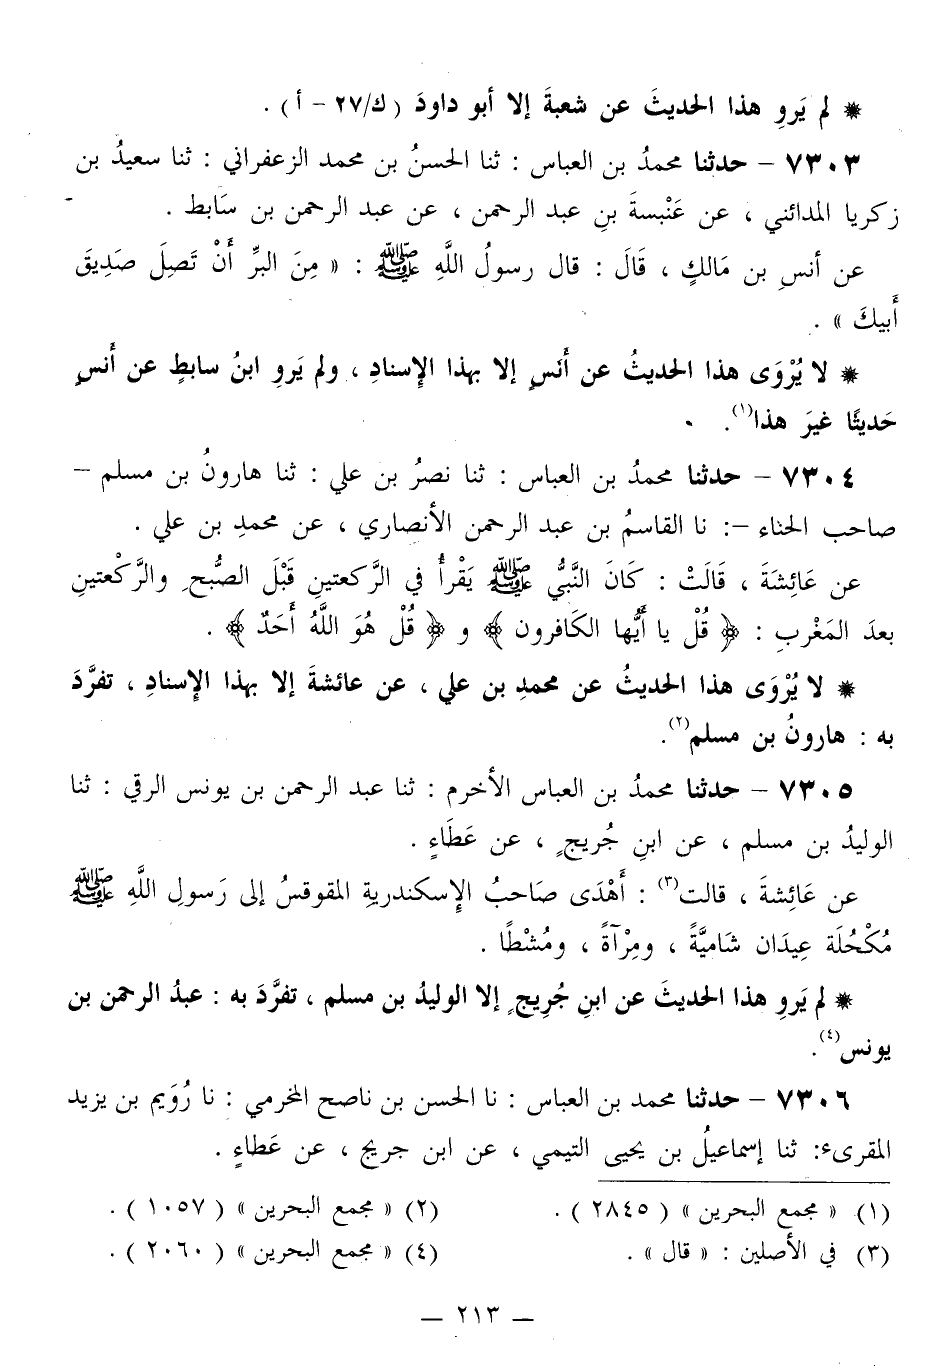 * لم يَروِ هذا الحديثَ عن شعبةَ إلا أبو داودَ ( ك/٢٧ - أ ) .
٧٣٠٣ - حدثنا محمدُ بن العباس : ثنا الحسنُ بن محمد الزعفراني : ثنا سعيدُ بن
زكريا المدائني ، عن عَنْبسةَ بنِ عبد الرحمن ، عن عبد الرحمن بن سَابط .
عن أنسِ بن مَالكٍ ، قَالَ : قال رسولُ اللَّهِ ﷺ : « مِنَ البرِّ أَنْ تَصِلَ صَدِيقَ
أَبيكَ » .
* لا يُرْوَى هذا الحديثُ عن أَنَسٍ إلا بهذا الإِسنادِ ، ولم يَروِ ابنُ سابطٍ عن أَنسٍ
حَديثًا غيرَ هذا(١).
٧٣٠٤ - حدثنا محمدُ بن العباس : ثنا نصرُ بن علي : ثنا هارونُ بن مسلم -
صاحب الحناء -: نا القاسمُ بن عبد الرحمن الأنصاري ، عن محمدِ بن علي .
عن عَائِشَةَ ، قَالَتْ : كَانَ النَّبيُّ ﷺ يَقْرأُ في الرَّكعتينِ قَبْلَ الصُّبحِ والرَّكْعتينِ
بعدَ المَغْربِ : ﴿ قُلْ يا أَيُّها الكَافرون ﴾ و ﴿ قُلْ هُوَ اللَّهُ أَحَدٌ ﴾ .
* لا يُرْوَى هذا الحديثُ عن محمدِ بن علي ، عن عائشةَ إلا بهذا الإِسنادِ ، تفرَّدَ
به : هارونُ بن مسلم(٢).
٧٣٠٥ - حدثنا محمدُ بن العباس الأخرم : ثنا عبد الرحمن بن يونس الرقي : ثنا
الوليدُ بن مسلم ، عن ابنِ جُريجٍ ، عن عَطَاءٍ .
عن عَائِشةَ ، قالت(٣) : أَهْدَى صَاحبُ الإِسكندريةِ المقوقسُ إلى رَسولِ اللَّهِ ﷺ
مُكْحُلَة عِيدَان شَاميَّةً ، ومِرْآةً ، ومُشْطًا .
* لم يَروِ هذا الحديثَ عن ابنِ جُرِيجٍ إلا الوليدُ بن مسلم ، تفرَّدَ به : عبدُ الرحمن بن
يونس(٤).
٧٣٠٦ - حدثنا محمد بن العباس : نا الحسن بن ناصح المخرمي : نا رُوَيم بن يزيد
المقرىء: ثنا إسماعيلُ بن يحيى التيمي ، عن ابن جريج ، عن عَطاءٍ .
(١) « مجمع البحرين » ( ٢٨٤٥ ) .
(٢) « مجمع البحرين » ( ١٠٥٧ ) .
(٣) في الأصلين : « قال » .
(٤) « مجمع البحرين » ( ٢٠٦٠ ) .
— ٢١٣ —